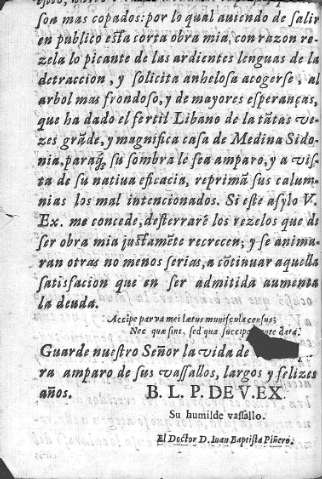 son mas copados: por lo qual auiendo de salir
en publico esta corta obra mia, con razon re-
zela lo picante de las ardientes lenguas de la
detraccion, y solicita anhelosa acogerse, al
arbol mas frondoso, y de mayores esperanças,
que ha dado el fertil Libano de la tātas ve-
zes grāde, y magnifica casa de Medina Sido-
nia, paraq̄, su sombra le sea amparo, y a vis-
ta de su natiua eficacia, reprimā sus calum-
nias los mal intencionados. Si este asylo V.
Ex. me concede, desterrarè los rezelos que de
ser obra mia justamēte recrecen; y se anima-
ran otras no menos serias, a cōtinuar aquella
satisfacion que en ser admitida aumenta
la deuda.
Accipe parua mei latus munuscula census;
Nec quæ sint, sed qua
Guarde nuestro Señor la vida de
ra amparo de sus vassallos, largos y felizes
años. B. L. P. DE V. EX.
Su humilde vassallo.
El Doctor D. Iuan Baptista Piñero.